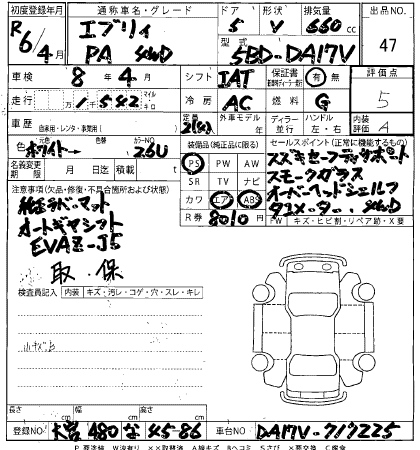 初度登録年月 通称車名・グレード ドア 形状 排気量 出品NO.
R 6/4月 エブリィ PA 4WD 5 V 660 cc 47
型式 5BD-DA17V
車検 8年4月 シフト IAT 保証書 有 無 評価点 5
走行 1542 マイル キロ 冷房 AC 燃料 G 内装評価 A
車歴 自家用・レンタ・事業用( ) 定員 2(4)人 外車モデル 年 ディーラー 並行 ハンドル 左・右
色 元色 ホワイト 色替 カラーNO. 26U
装備品(純正品に限る) セールスポイント(正常に機能するもの)
名義変更期限 月 日迄 積載 t
PS PW AW
SR TV ナビ
カワ エアB ABS
R券 8010円
スズキセーフティサポート
スモークガラス
オーバーヘッドシェルフ
4WD
FW キズ・ヒビ割・リペア跡・X要
注意事項(欠品・修復・不具合箇所および状態)
純正ラバーマット
オートギヤシフト
EVAZ-J5
取・保
検査員記入 内装 キズ・汚レ・コゲ・穴・スレ・キレ
長さ cm 幅 cm 高さ cm
登録NO 大宮 480 な 45-86 車台NO DA17V-717225